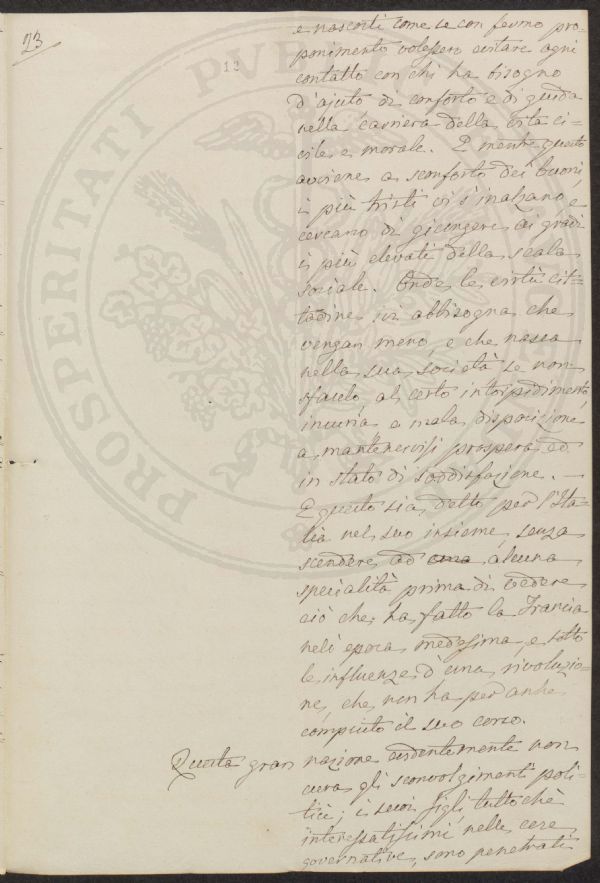 23
12
e nascosti come se con fermo pro-
ponimento volessero evitare ogni
contatto con chi ha bisogno
d'ajuto di conforto e di guida
nella carriera della vita ci-
vile e morale. E mentre questo
avviene a sconforto dei buoni,
i più tristi vi s'inalzano e
cercano di giungere ai gradi
i più elevati della scala
sociale. Onde le virtù cit-
tadine ivi abbisogna che
vengan meno, e che nasca
nella sua società se non
sfacelo, al certo intorpidimento,
incuria e mala disposizione
a mantenervisi prospera ed
in stato di soddisfazione. —
E questo sia detto per l'Ita-
lia nel suo insieme, senza
scendere ad alcuna
specialità prima di vedere
ciò che ha fatto la Francia
nell'epoca medesima, e sotto
le influenze d'una rivoluzio-
ne, che non ha per anche
compiuto il suo corso.
Questa gran nazione evidentemente non
cura gli sconvolgimenti poli-
tici; i suoi figli tuttochè
interessatissimi nelle cose
governative, sono penetrati
PROSPERITATI PVBLICAE